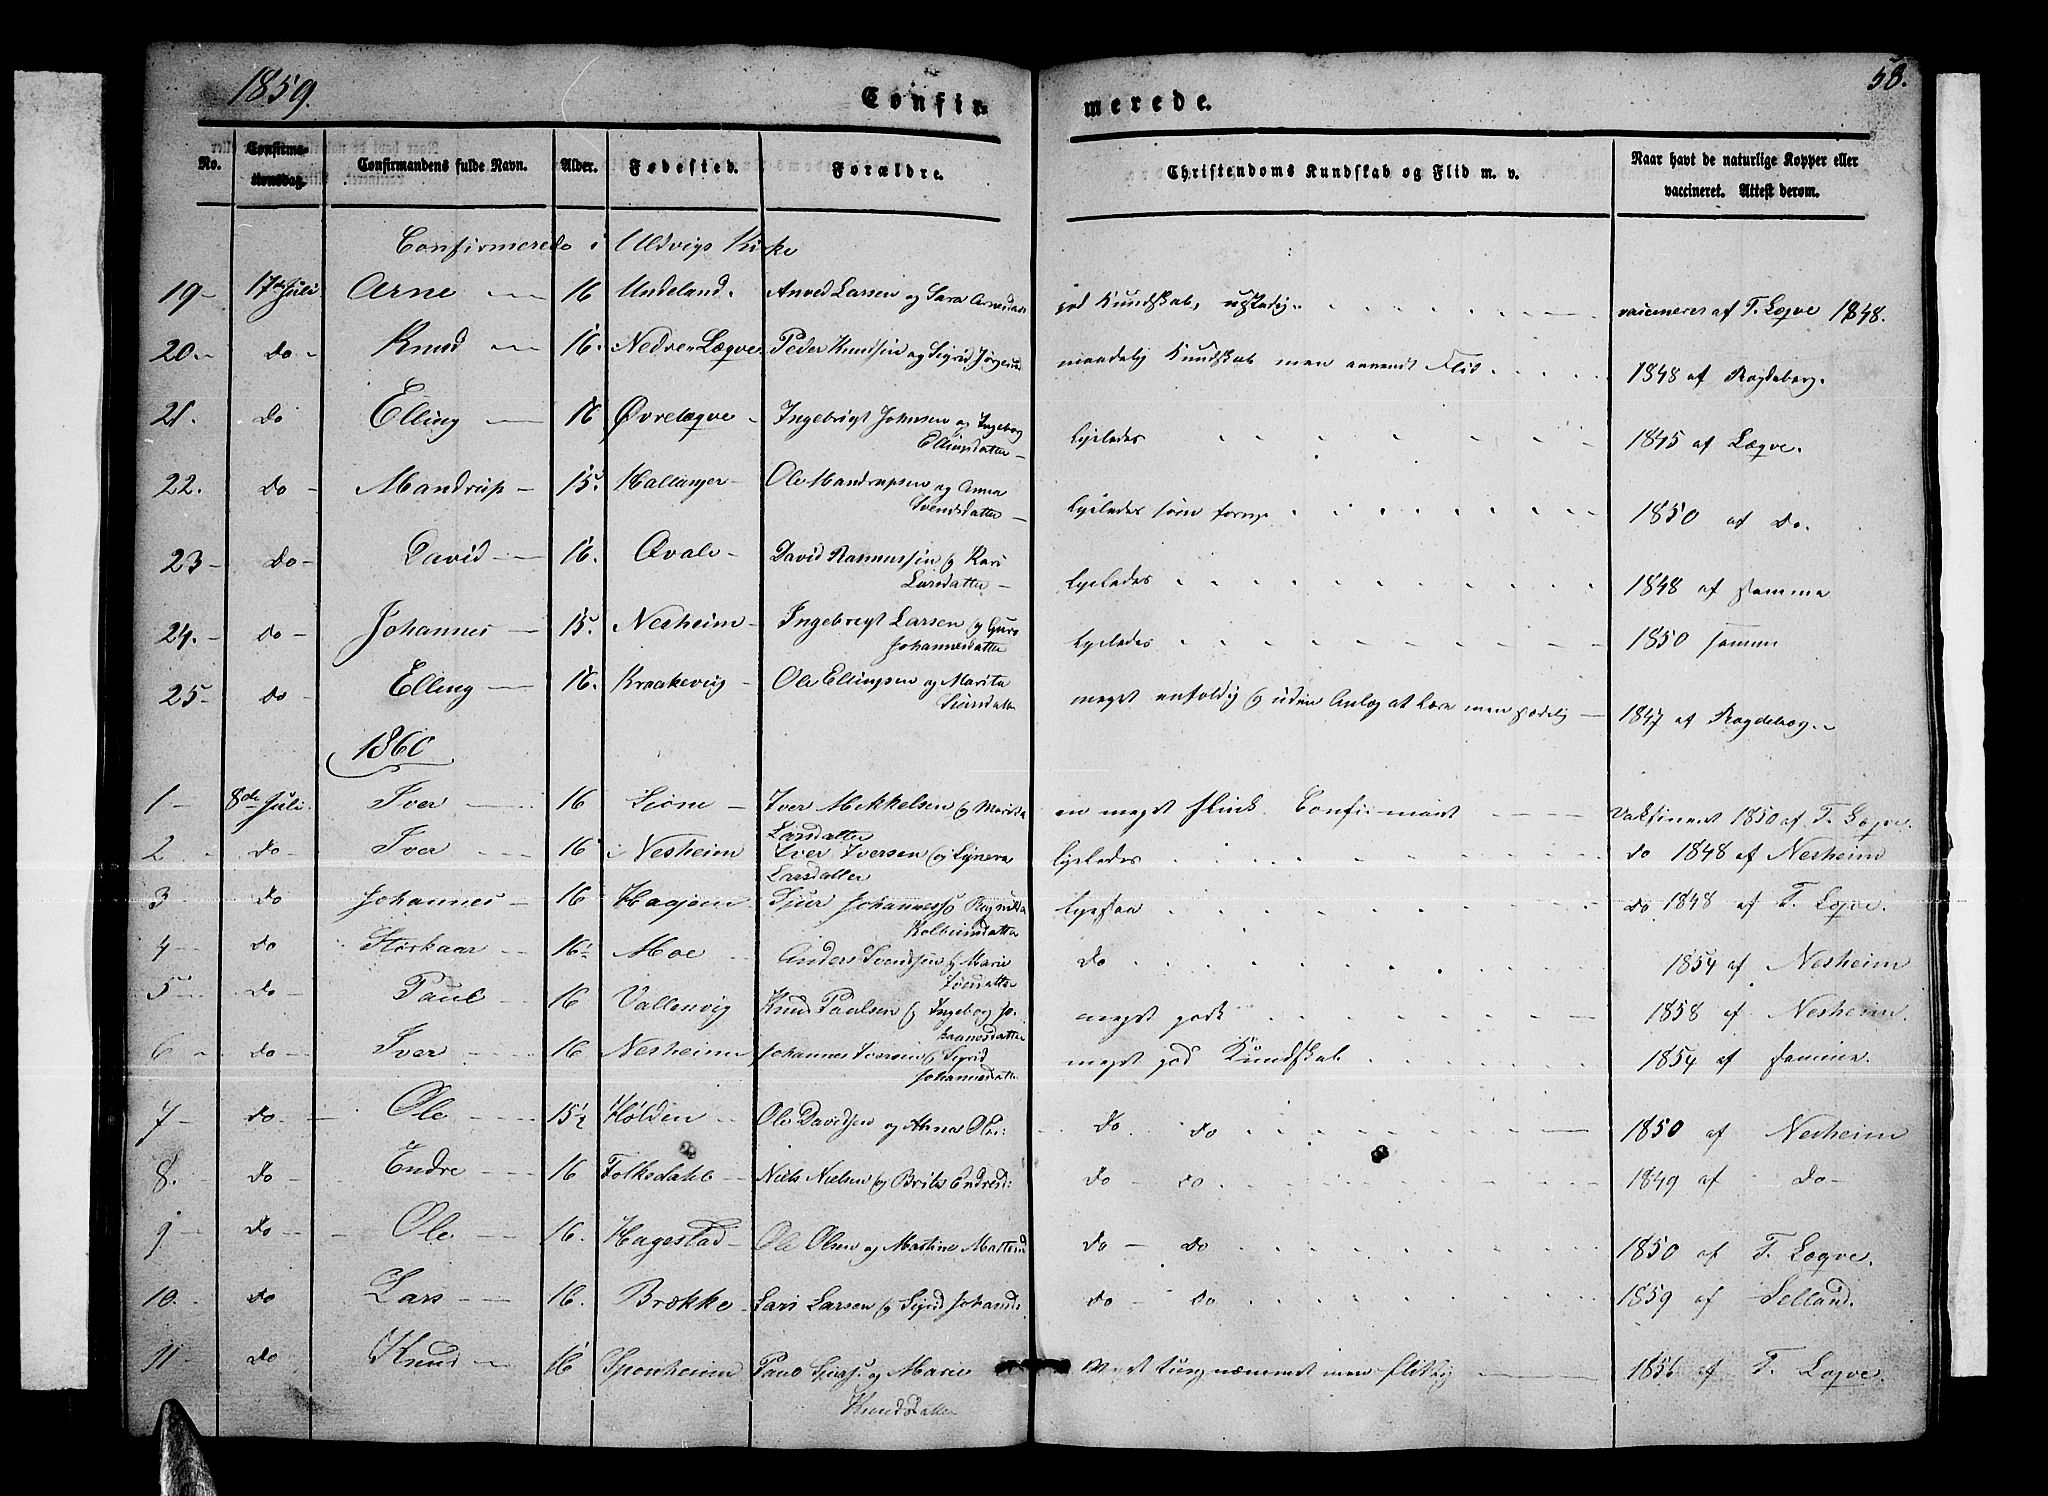 1859.
58.
Confir- merede.
No. Confirmationsdag. Confirmandens fulde Navn. Alder. Fødested. Forældre. Christendoms Kundskab og Flid m. v. Naar havt de naturlige Kopper eller vaccineret. Attest derom.
Confirmerede i Ulvigs Kirke
19 17de Juli Arne 16 Undeland. Larsen og Sara god Kundskab, af T. Legve 1848.
20 do Knud 16. Nedre Lægve Peder Knudsen og Sigrid maadelig Kundskab men anvendt Flid 1848 af Rogdeberg.
21. do Elling 16 Øvrelegve Ingebrigt Johnsen og Ingeborg
Ellingsdatter ligeledes 1845 af Lægve.
22. do Mandrup 15. Hallanger Ole Mandrupsen og Anna
Svendsdatter ligeledes som forrige 1850 af do.
23 do David 16. Qvale David Rasmussen og Kari
Larsdatter ligeledes 1848 af samme
24. do Johannes 15. Nesheim Ingebrigt Larsen og Guro
Johannesdatter ligeledes 1850 samme
25 do Elling 16. Kraakevig Ole Ellingsen og Marita
meget enfoldig og uden Anlæg at lære men sædelig 1847 af Rogdeberg.
1860
1 8de Juli Iver 16 Iver Mikkelsen og Marita
Larsdatter en meget flink Confirmant Vaktineret 1850 af T. Legve.
2 do Iver 16 Nesheim Iver Iversen og
Larsdatter ligeledes do 1848 af Nesheim
3 do Johannes 16 Sjur Johanness og
ligesaa do 1848 af T. Legve.
4 do Størkaar 16½ Moe Anders Svendsen og Marie
do 1854 af Nesheim
5 do Paul 16 Vallevig Knud Paulsen og Ingeborg Jo-
hannesdatter meget godt 1858 af Nesheim.
6 do Iver 16 Nesheim Johannes Iversen og Sigrid
Johannesdatter meget god Kundskab 1854 af samme.
7 do Ole 15½ Holden Ole Davidsen og Anna do do 1850 af Nesheim
8. do Endre 16 Folkedahl Niels Nielsen og Brita Endresd: do do 1849 af do
9 do Ole 16. Hagestad Ole Olsen og Martine do do 1850 af T. Legve.
10. do Lars 16. Brække Lars Larsen og Sigrid do do 1859 af Selland.
11 do Knud 16 Sponheim Paul Sjurs. og Marie
Knudsdatter tungnæmmet men flittig 1856 af T. Legve.